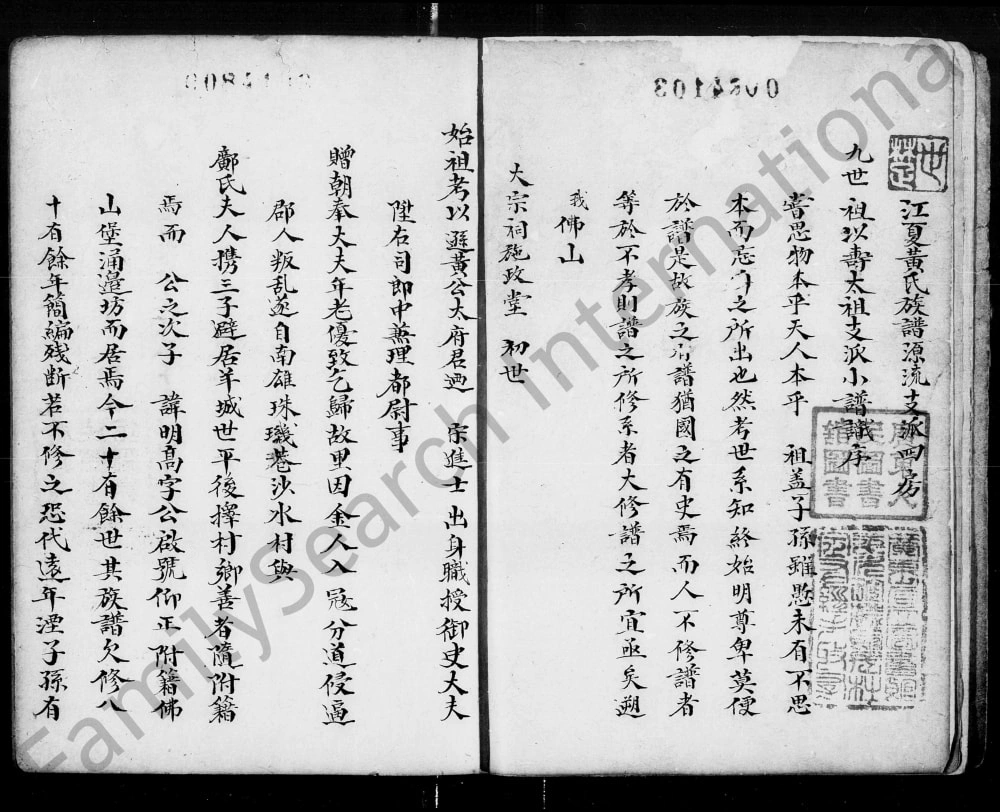 江夏黃氏族譜源流支派四房
九世祖以壽太祖支派小譜識序
嘗思物本乎天人本乎 祖盖子孫雖愚未有不思
本而忘 之所出也然考世系知終始明尊卑莫便
於譜是故族之有譜猶國之有史焉而人不修譜者
等於不孝則譜之所修系者大修譜之所宜亟矣溯
我佛山
大宗祠施政堂 初世
始祖考以遜黃公太府君迺 宋進士出身職授御史大夫
陞右司郎中兼理都尉事
贈朝奉大夫年老優致乞歸故里因金人入冦分道侵逼
郡人叛乱遂自南雄珠璣巷沙水村與
鄺氏夫人携三子避居羊城世平後擇村鄉善者隨附籍
焉而 公之次子 諱明高字公啟號仰正附籍佛
山堡涌邉坊而居焉今二十有餘世其族譜欠修八
十有餘年簡編残断若不修之恐代遠年湮子孫有
0064103
FamilySearch International